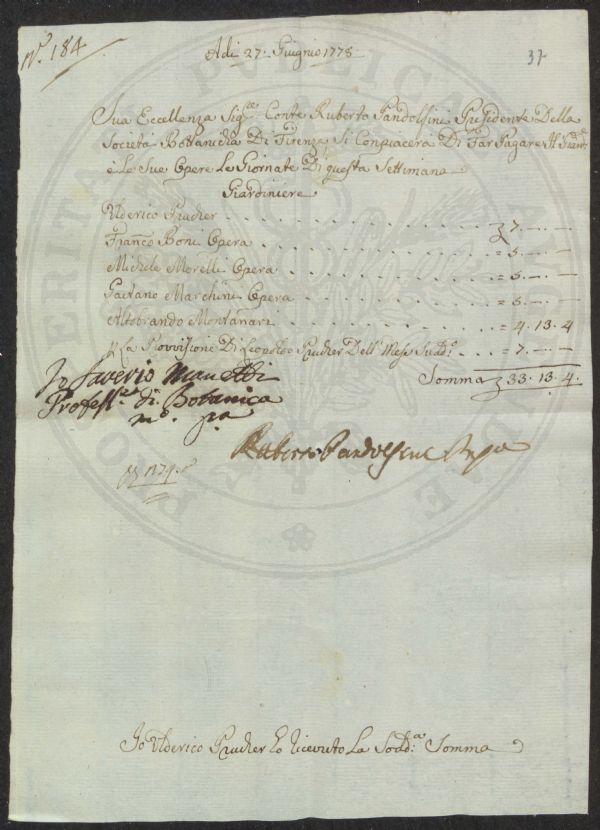 N.º 184
Adi 27. Giugnio 1778
37
Sua Eccellenza Sig.re Conte Ruberto Pandolfini Presidente Della
Società Bottanicha Di Firenze Si Conpiacerà Di Far Pagare Il Giard.re
e Le Sue Opere Le Giornate Di questa Settimana
Giardiniere
Ulderico Prucher . . . . . . . . . . . 7. — . —
Franco Boni Opera . . . . . . . . . . = 5. — . —
Michele Morelli Opera . . . . . . . . = 5. — . —
Gaetano Marchini Opera . . . . . . . = 5. — . —
Altobrando Montanari . . . . . . . . = 4. 13. 4
p La Provisione Di Leopoldo Prucher Dell' Mese Sudd.º . . = 7. — . —
Somma 33. 13. 4.
Io Saverio Manetti
Profess.re di Botanica
m.º p.a
Ruberto Pandolfini
Io Ulderico Prucher ho Ricevuto La Sudd.a Somma